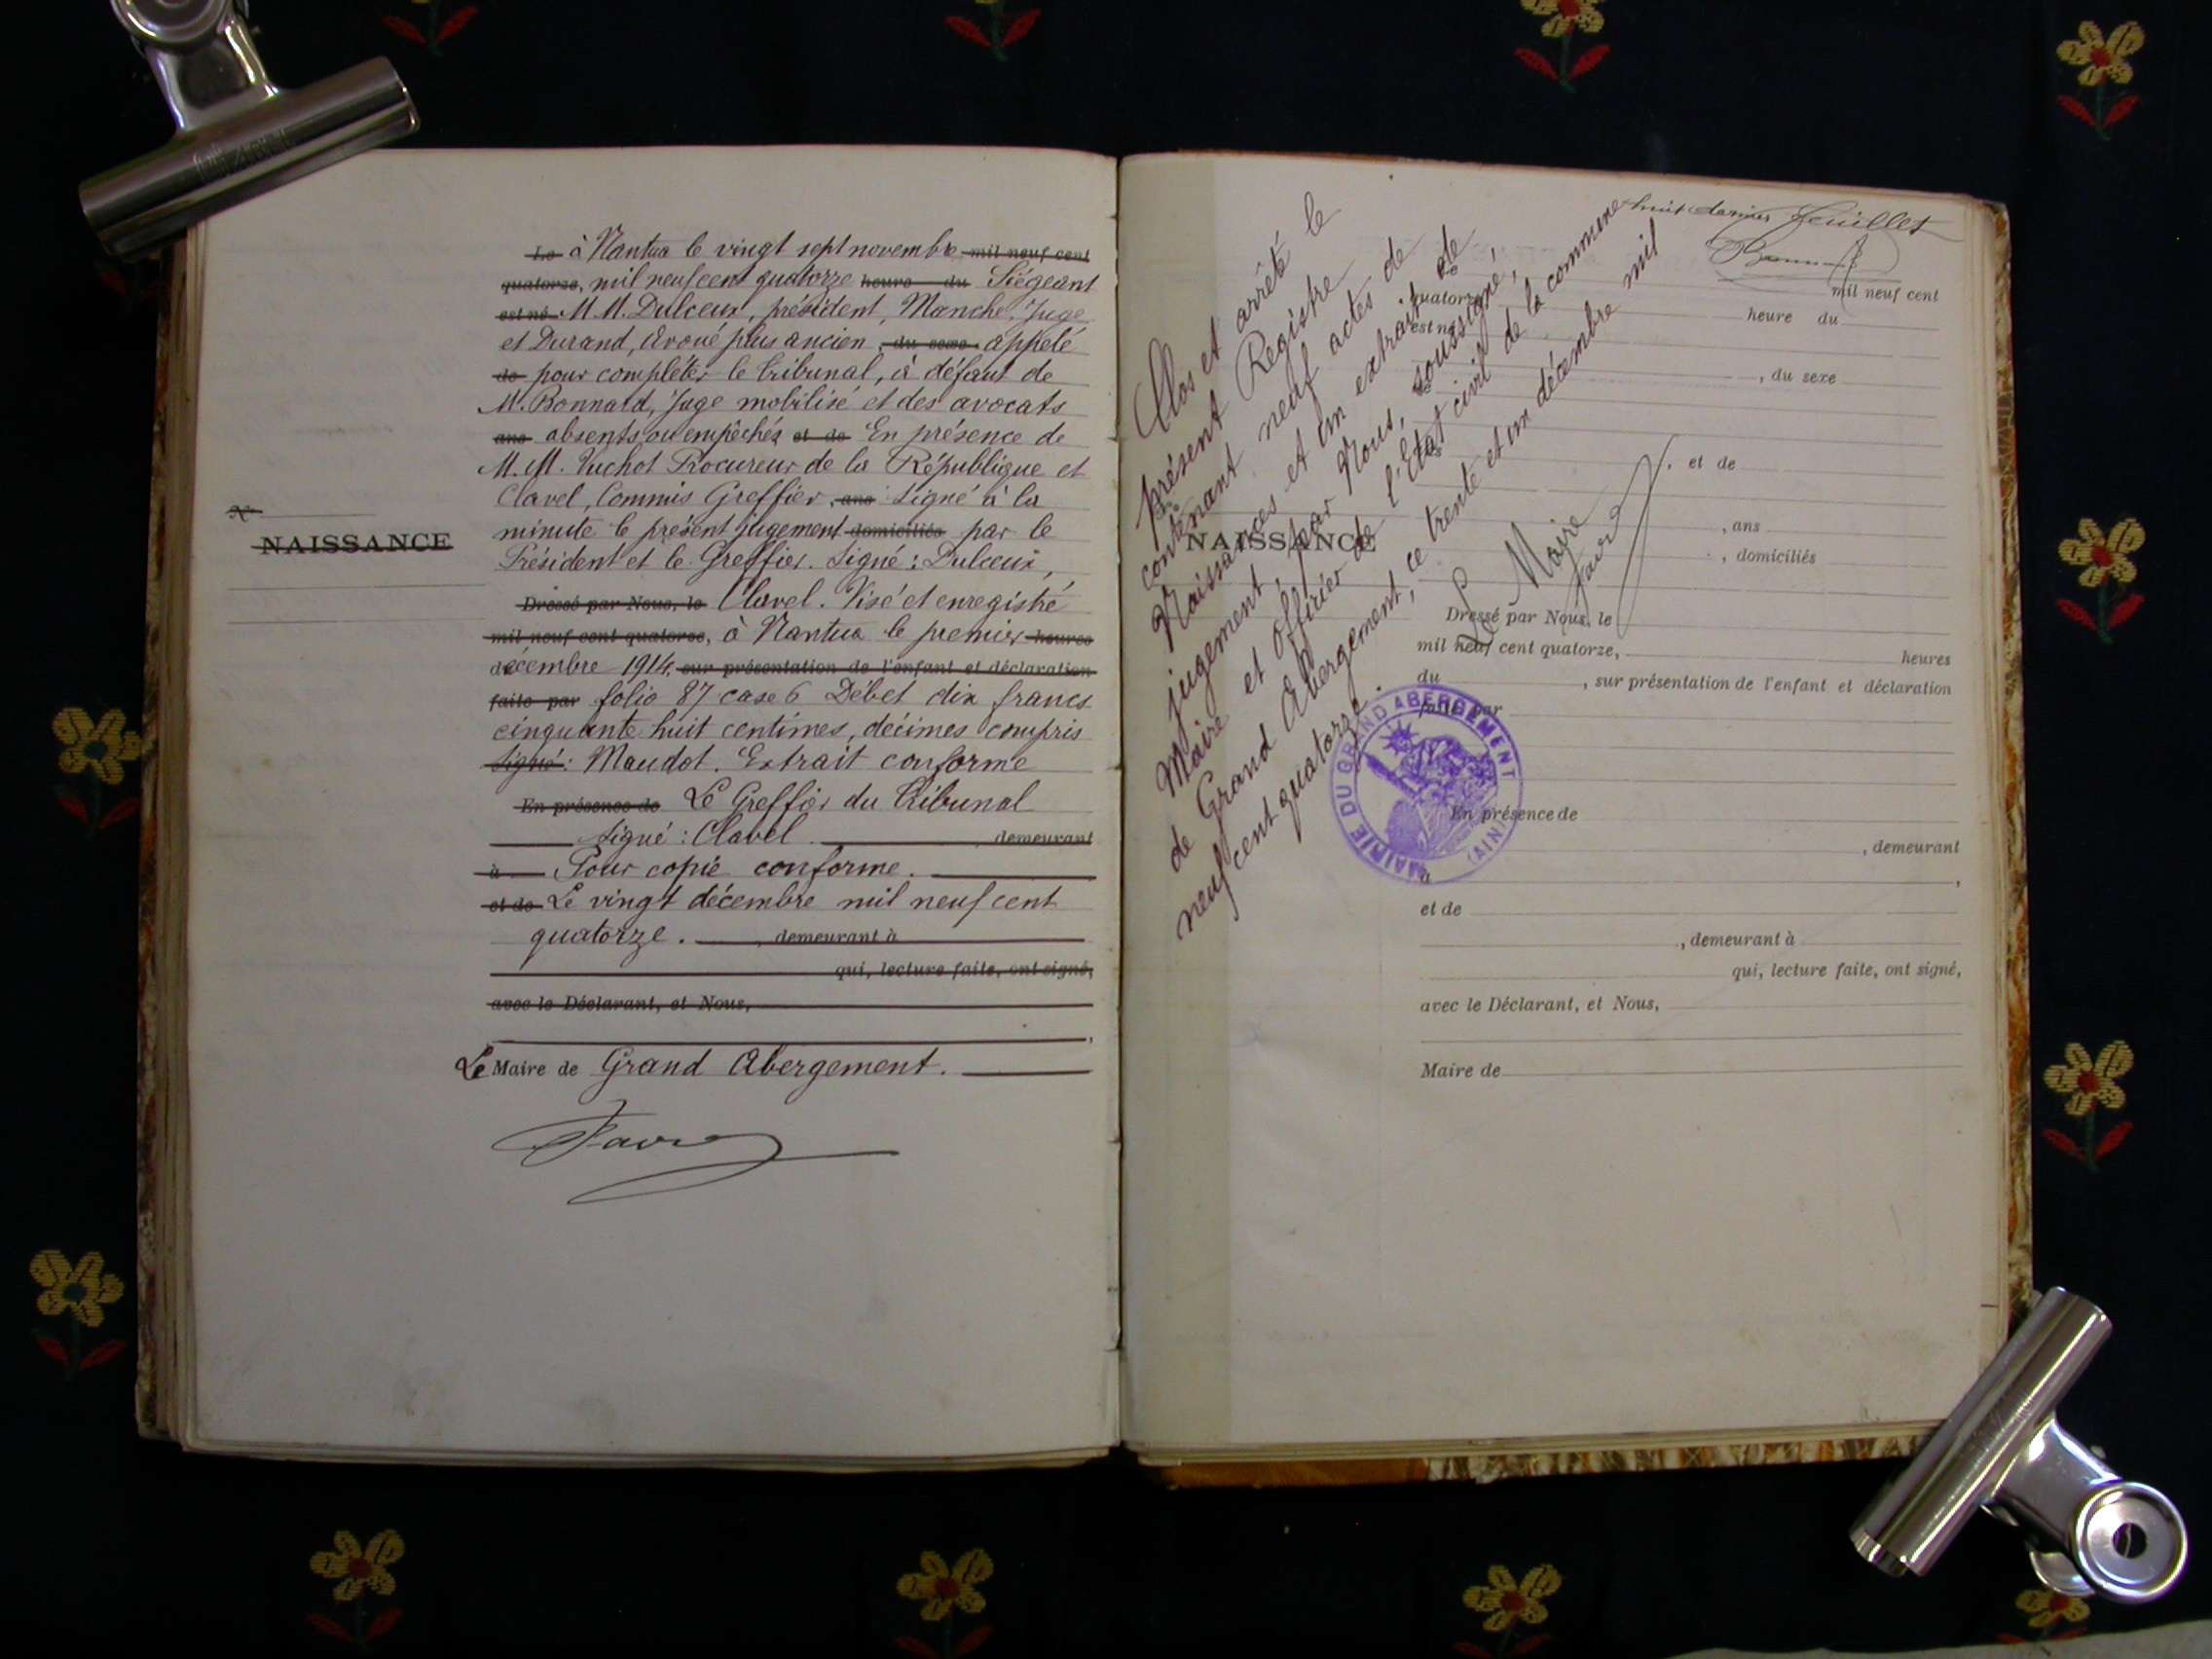 Le à Nantua le vingt sept novembre mil neuf cent
quatorze, mil neuf cent quatorze heure du Siégeant
est né M.M. Dulceux, président, Manche, Juge
et Durand, avoué plus ancien, du sexe appelé
de pour compléter le tribunal, à défaut de
M. Bonnald, Juge mobilisé et des avocats
ans absents ou empêchés et de En présence de
M.M. Vuchot Procureur de la République et
Clavel, Commis Greffier, ans Signé à la
minute le présent jugement domiciliés par le
Président et le Greffier. Signé : Dulceux,
N°
NAISSANCE
Dressé par Nous, le Clavel. Visé et enregistré
mil neuf cent quatorze, à Nantua le premier heures
décembre 1914, sur présentation de l'enfant et déclaration
faite par folio 87 case 6 Débet dix francs
cinquante huit centimes, décimes compris
Signé : Maudot. Extrait conforme
En présence de Le Greffier du Tribunal
Signé : Clavel. demeurant
à Pour copie conforme.
et de Le vingt décembre mil neuf cent
quatorze. , demeurant à
qui, lecture faite, ont signé,
avec le Déclarant, et Nous,
Le Maire de Grand Abergement.
Favre
huit dernier feuillet
Clos et arrêté le
présent Registre
contenant neuf actes de
Naissances et un extrait de
jugement, par Nous, soussigné,
Maire et officier de l'Etat civil de la commune
de Grand Abergement, ce trente et un décembre mil
neuf cent quatorze.
Le Maire
Favre
mil neuf cent
quatorze
heure du
est né
, du sexe
, et de
, ans
, domiciliés
NAISSANCE
Dressé par Nous, le
mil neuf cent quatorze, heures
du , sur présentation de l'enfant et déclaration
faite par
MAIRIE DU GRAND ABERGEMENT
(AIN)
En présence de
, demeurant
à ,
et de
, demeurant à
qui, lecture faite, ont signé,
avec le Déclarant, et Nous,
Maire de